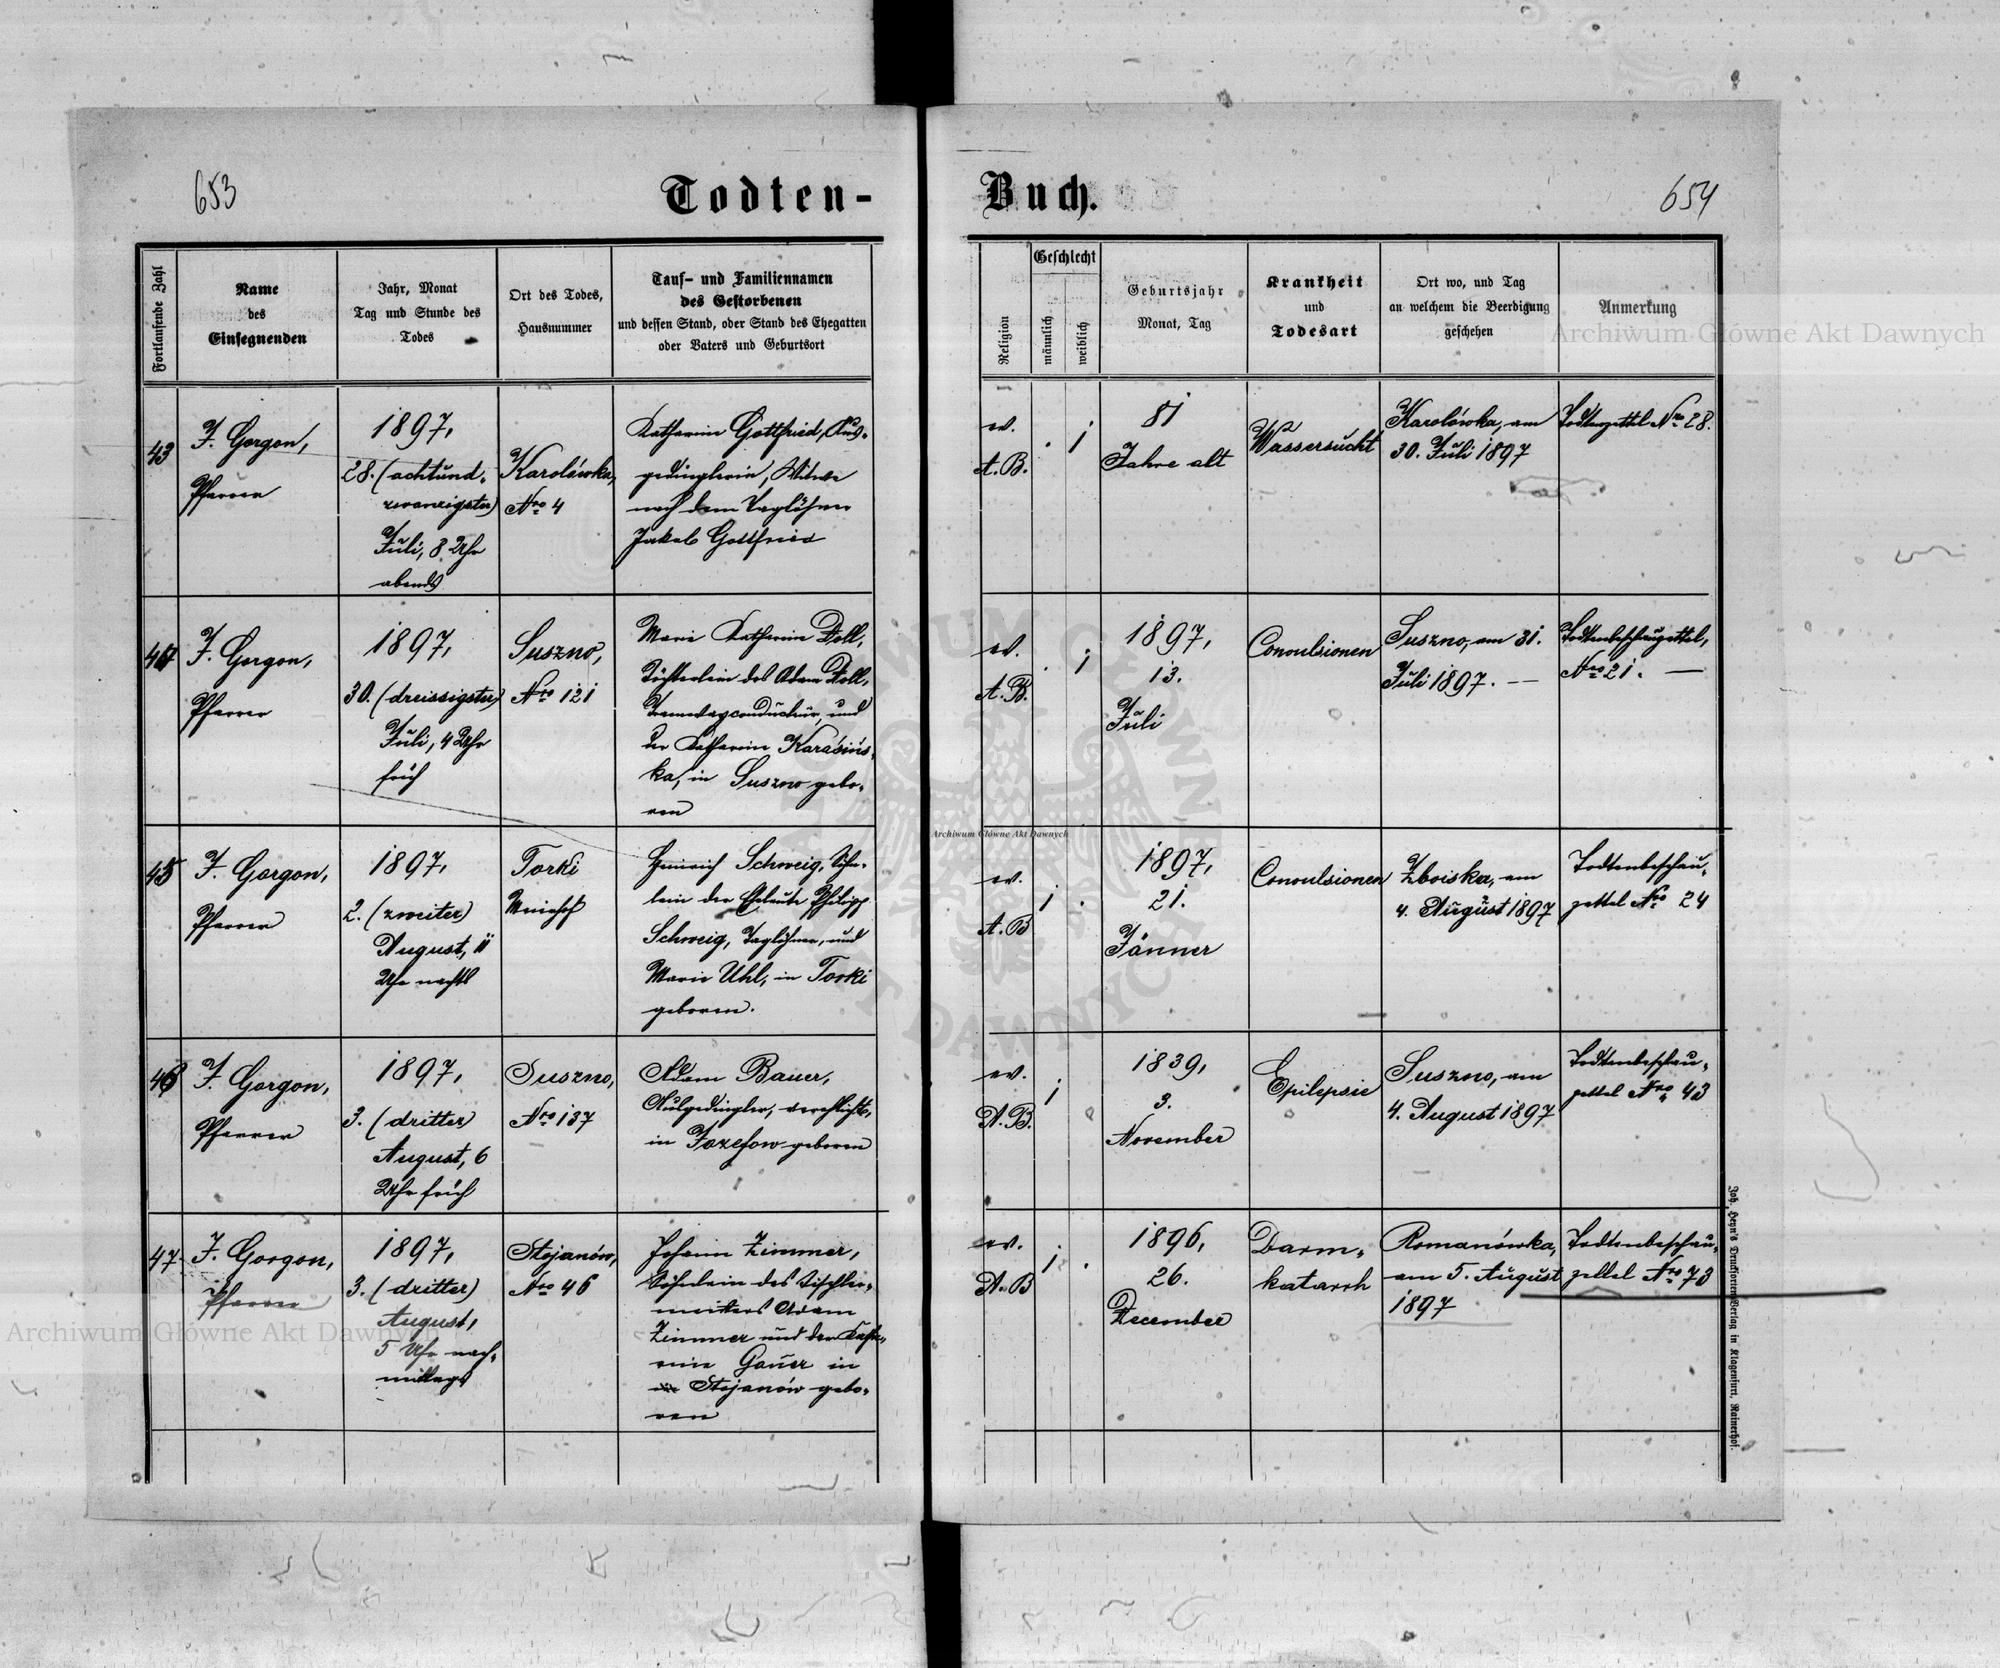 653
Todten-
Buch.
654
Fortlaufende Zahl
Name
des
Einsegnenden
Jahr, Monat
Tag und Stunde des
Todes
Ort des Todes,
Hausnummer
Tauf- und Familiennamen
des Gestorbenen
und dessen Stand, oder Stand des Ehegatten
oder Vaters und Geburtsort
Religion
Geschlecht
männlich
weiblich
Geburtsjahr
Monat, Tag
Krankheit
und
Todesart
Ort wo, und Tag
an welchem die Beerdigung
geschehen
Anmerkung
43
F. Gorgon,
Pfarrer
1897,
28. (achtund-
zwanzigster)
Juli, 8 Uhr
abends
Karolówka,
Nro 4
Katharine Gottfried, Aus-
gedinglerin, Witwe
nach dem Taglöhner
Jakob Gottfried
ev.
A.B.
. 1
81
Jahre alt
Wassersucht
Karolówka, am
30. Juli 1897
Todtenzettel Nro 28.
44
F. Gorgon,
Pfarrer
1897,
30. (dreissigster)
Juli, 4 Uhr
früh
Suszno,
Nro 121
Marie Katharine Doll,
Töchterlein des Adam Doll,
Tramwayconducteur, und
der Katharine Karasins-
ka, in Suszno gebo-
ren
ev.
A.B.
. 1
1897,
13.
Juli
Convulsionen
Suszno, am 31.
Juli 1897. —
Todtenbeschauzettel,
Nro 21. —
45
F. Gorgon,
Pfarrer
1897,
2. (zweiter)
August, 11
Uhr nachts
Torki
Meierhof
Heinrich Schweig, Söhn-
lein der Eheleute Philipp
Schweig, Taglöhner, und
Marie Uhl, in Torki
geboren.
ev.
A.B
1 .
1897,
21.
Jänner
Convulsionen
Zboiska, am
4. August 1897
Todtenbeschau-
zettel Nro 24
46
F. Gorgon,
Pfarrer
1897,
3. (dritter)
August, 6
Uhr früh
Suszno,
Nro 137
Adam Bauer,
Ausgedingler, verehlicht,
in Jozefow geboren
ev.
A.B.
1 .
1839,
3.
November
Epilepsie
Suszno, am
4. August 1897
Todtenbeschau-
zettel Nro 43
47
F. Gorgon,
Pfarrer
1897,
3. (dritter)
August,
5 Uhr nach-
mittags
Stojanów,
Nro 46
Johann Zimmer,
Söhnlein des Tischler-
meisters Adam
Zimmer und der Katha-
rine Gauer in
Stojanów gebo-
ren
ev.
A.B
1 .
1896,
26.
December
Darm-
katarrh
Romanówka,
am 5. August
1897
Todtenbeschau-
zettel Nro 73
Joh. Heyn's Drucksorten-Verlag in Klagenfurt, Rainerhof.
Archiwum Główne Akt Dawnych
Archiwum Główne Akt Dawnych
Archiwum Główne Akt Dawnych
ARCHIWUM GŁÓWNE AKT DAWNYCH